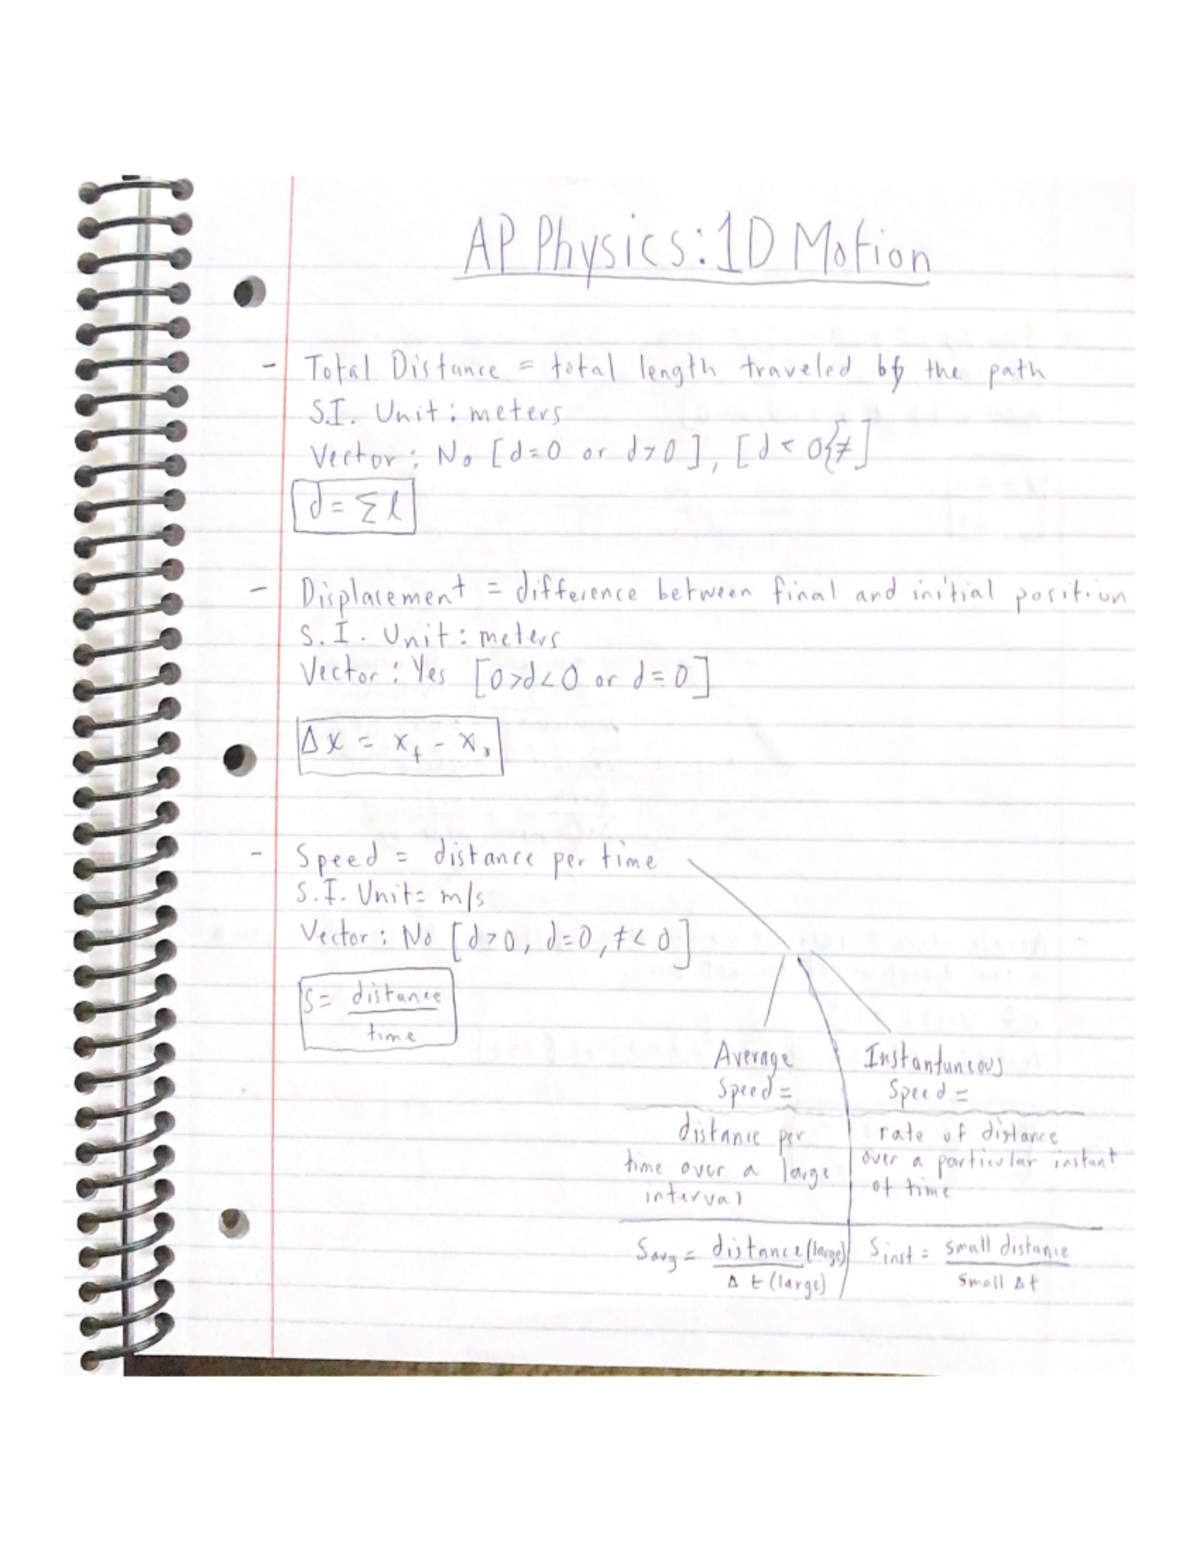 AP Physics: 1D Motion
- Total Distance = total length traveled by the path
S.I. Unit: meters
Vector: No [d=0 or d>0], [d < 0{≠]
d = Σl
- Displacement = difference between final and initial position
S.I. Unit: meters
Vector: Yes [0>d<0 or d=0]
Δx = x_f - x
- Speed = distance per time
S.I. Unit= m/s
Vector: No [d>0, d=0, ≠<0]
S= distance
time
Average
Speed=
distance per
time over a large
interval
Savg = distance (large)
Δt (large)
Instantuneous
Speed =
rate of distance
over a particular instant
of time
Sinst = small distance
small Δt